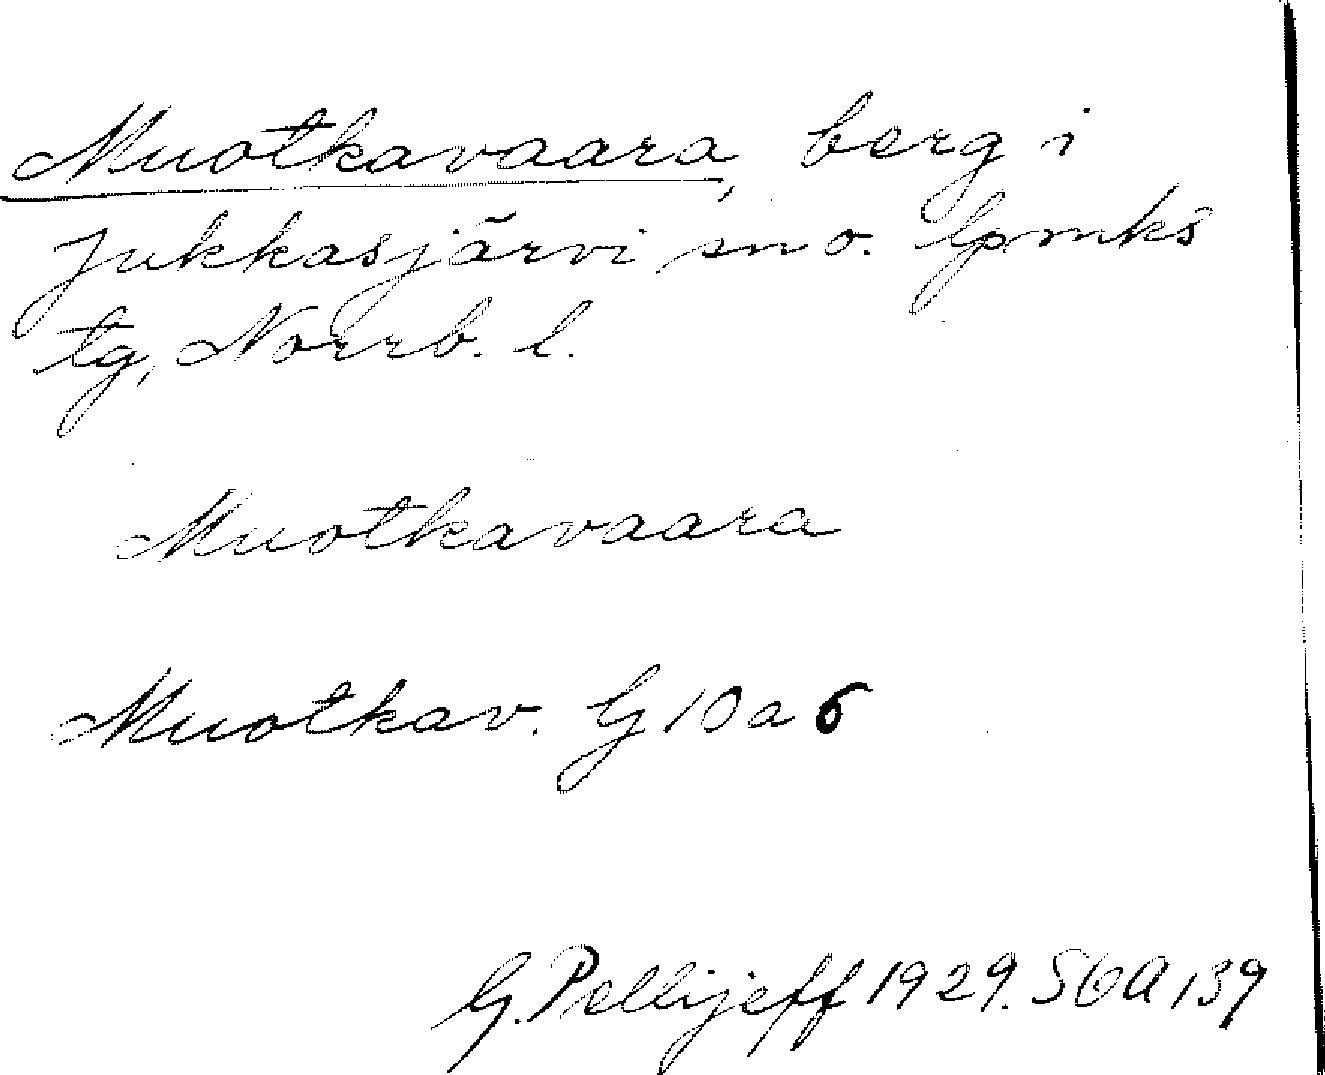 Muotkavaara, berg i
Jukkasjärvi sn o. lpmks
tg, Norrb. l.
Muotkavaara
Muotkav. G 10 a 6
G. Pellijeff 1929. SOA 139